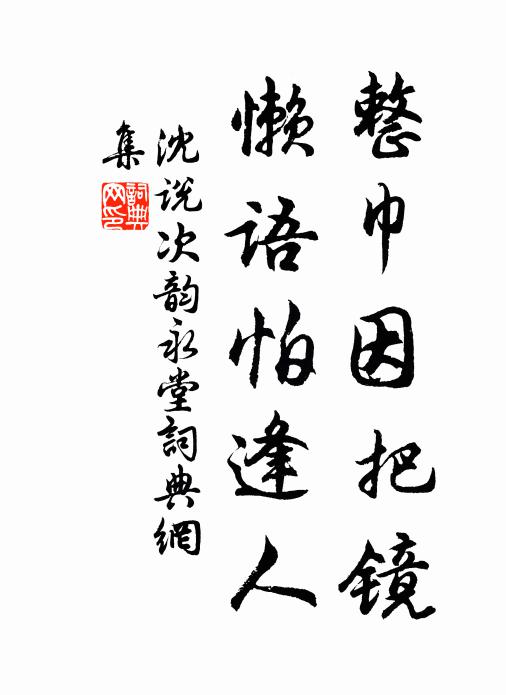 整巾因把镜
懒语怕逢人
沈说次韵永堂詞典網
集
詞典
网印